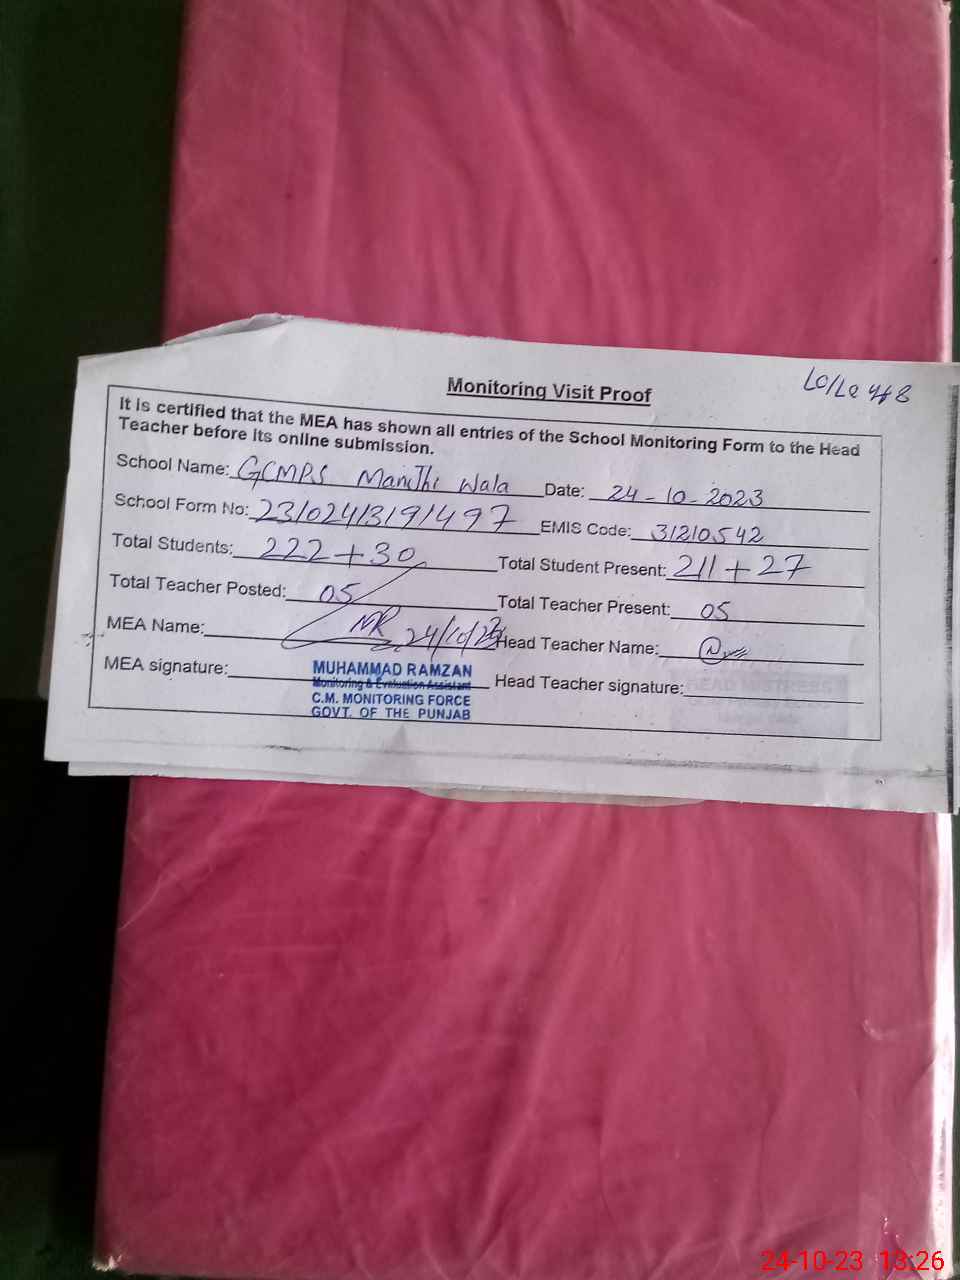 Monitoring Visit Proof
It is certified that the MEA has shown all entries of the School Monitoring Form to the Head
Teacher before its online submission.
School Name: GCMPS Mandhi Wala Date: 24-10-2023
School Form No: 23/024/3191497 EMIS Code: 31210542
Total Students: 222+30 Total Student Present: 211+27
Total Teacher Posted: 05 Total Teacher Present: 05
MEA Name: MR 24/10/23 Head Teacher Name:
MEA signature: Head Teacher signature:
MUHAMMAD RAMZAN
Monitoring & Evaluation Assistant
C.M. MONITORING FORCE
GOVT. OF THE PUNJAB
HEAD MISTRESS
24-10-23 13:26